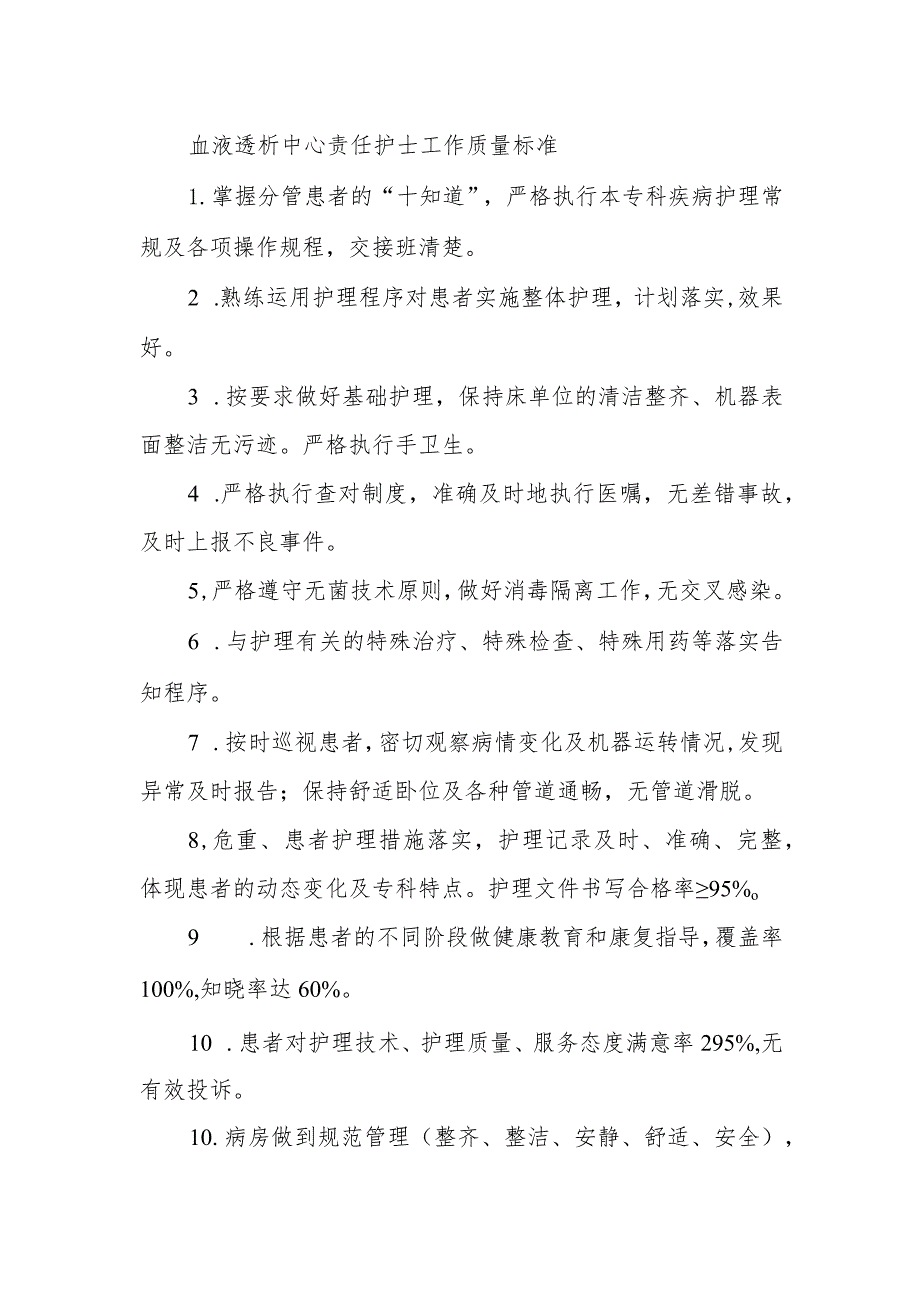 血液透析中心责任护士工作质量标准
1. 掌握分管患者的“十知道”，严格执行本专科疾病护理常
规及各项操作规程，交接班清楚。
2 .熟练运用护理程序对患者实施整体护理，计划落实,效果
好。
3 .按要求做好基础护理，保持床单位的清洁整齐、机器表
面整洁无污迹。严格执行手卫生。
4 .严格执行查对制度，准确及时地执行医嘱，无差错事故，
及时上报不良事件。
5,严格遵守无菌技术原则,做好消毒隔离工作,无交叉感染。
6 .与护理有关的特殊治疗、特殊检查、特殊用药等落实告
知程序。
7 .按时巡视患者,密切观察病情变化及机器运转情况,发现
异常及时报告；保持舒适卧位及各种管道通畅，无管道滑脱。
8,危重、患者护理措施落实，护理记录及时、准确、完整，
体现患者的动态变化及专科特点。护理文件书写合格率≥95%。
9 .根据患者的不同阶段做健康教育和康复指导,覆盖率
100%,知晓率达 60%。
10 .患者对护理技术、护理质量、服务态度满意率 295%,无
有效投诉。
10. 病房做到规范管理（整齐、整洁、安静、舒适、安全），